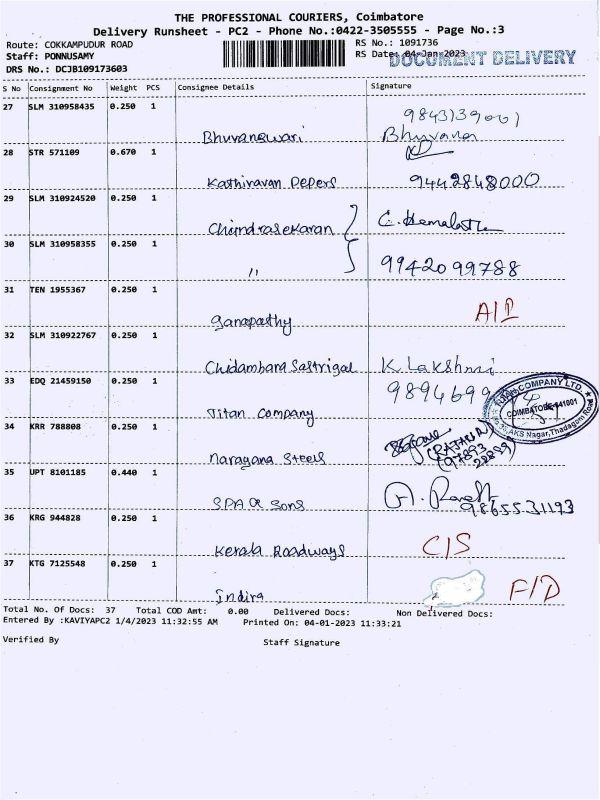 THE PROFESSIONAL COURIERS, Coimbatore
Delivery Runsheet - PC2 - Phone No.:0422-3505555 - Page No.:3
Route: COKKAMPUDUR ROAD
Staff: PONNUSAMY
DRS No.: DCJB109173603
RS No.: 1091736
RS Date: 04-Jan-2023
DOCUMENT DELIVERY
S No Consignment No Weight PCS Consignee Details Signature
27 SLM 310958435 0.250 1
Bhuvaneswari Bhuvana
28 STR 571109 0.670 1
Kathiravan Pepers 9442848000
29 SLM 310924520 0.250 1
Chandrasekaran C. Hemalatha
30 SLM 310958355 0.250 1
" 9942099788
31 TEN 1955367 0.250 1
ganapathy
32 SLM 310922767 0.250 1
Chidambara Sastrigal K. Lakshmi
33 EDQ 21459150 0.250 1
Titan Company 9894699
TITAN COMPANY LTD.
COIMBATORE-641001
AKS Nagar, Thadagam Road
34 KRR 788808 0.250 1
Narayana Steels
35 UPT 8101185 0.440 1
SPA & Sons 9865531193
36 KRG 944828 0.250 1
Kerala Roadways C/S
37 KTG 7125548 0.250 1
Indira F/D
Total No. Of Docs: 37 Total COD Amt: 0.00 Delivered Docs: Non Delivered Docs:
Entered By :KAVIYAPC2 1/4/2023 11:32:55 AM Printed On: 04-01-2023 11:33:21
Verified By Staff Signature